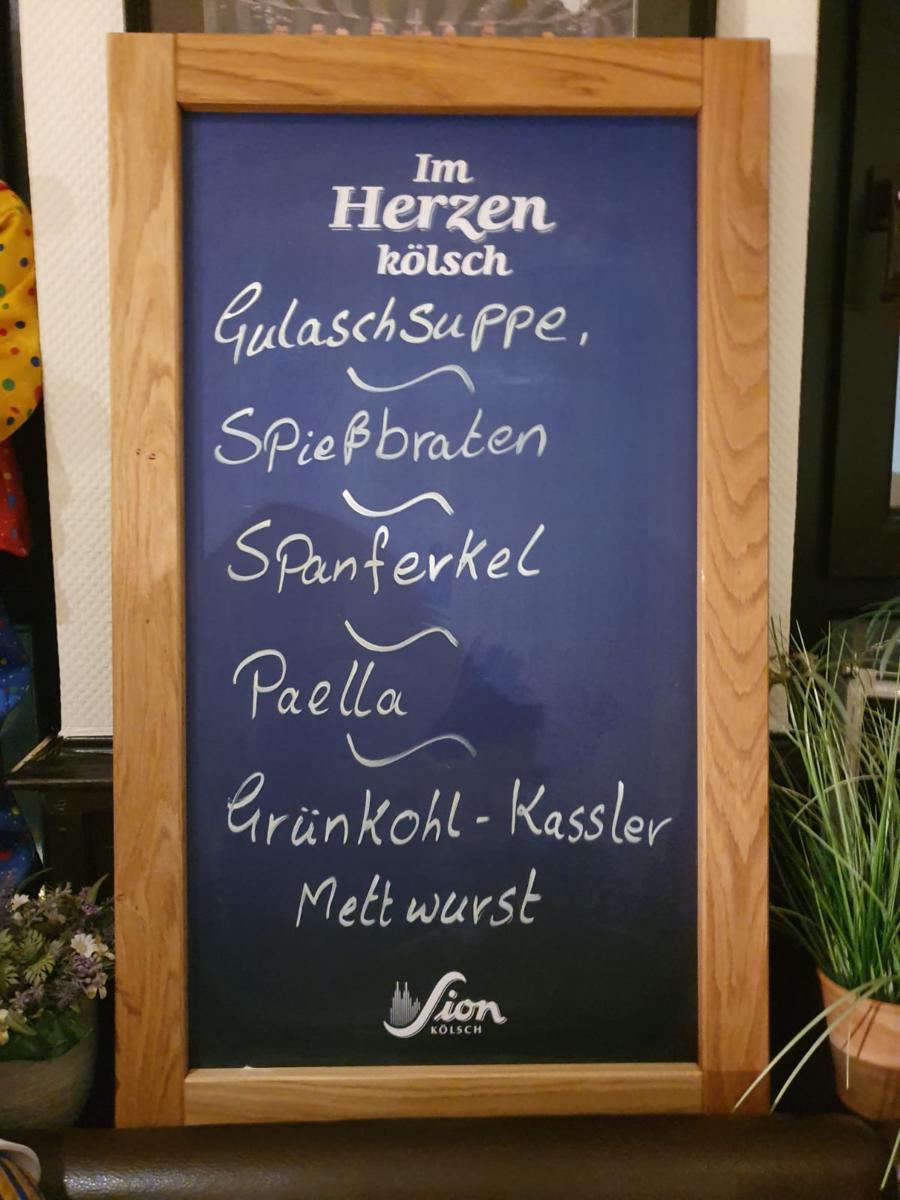 Im
Herzen
kölsch
Gulaschsuppe,
Spießbraten
Spanferkel
Paella
Grünkohl - Kassler
Mettwurst
Sion
KÖLSCH